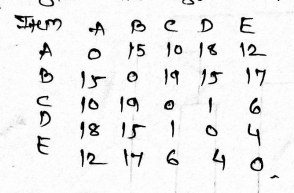 Item A B C D E
A 0 15 10 18 12
B 15 0 19 15 17
C 10 19 0 1 6
D 18 15 1 0 4
E 12 17 6 4 0